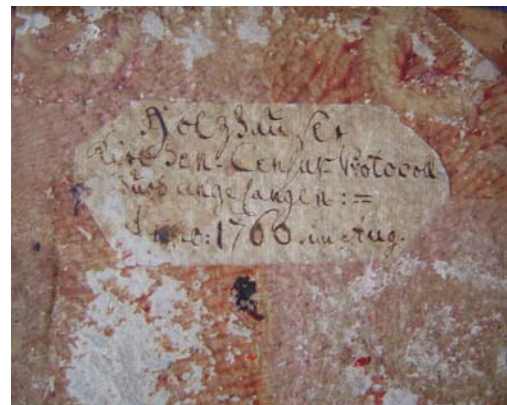 Holzhauser
Kirchen-Censur-Protocoll
Buch angefangen :=
Anno: 1766. im Aug.